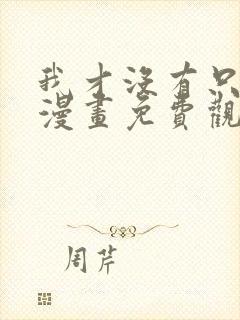 我才没有只
漫畫免費觀
周芹